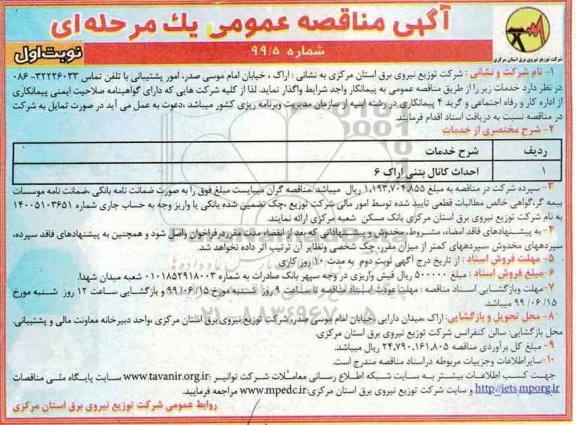 آگهی مناقصه عمومی یك مرحله‌ای
شماره ۹۹/۵
نوبت اول
شرکت توزیع نیروی برق استان مرکزی
۱- نام شرکت و نشانی: شرکت توزیع نیروی برق استان مرکزی به نشانی: اراک، خیابان امام موسی صدر، امور پشتیبانی با تلفن تماس ۳۲۲۲۶۰۳۳-۰۸۶
در نظر دارد خدمات زیر را از طریق مناقصه عمومی به پیمانکار واجد شرایط واگذار نماید. لذا از کلیه شرکت هایی که دارای گواهینامه صلاحیت ایمنی پیمانکاری
از اداره کار و رفاه اجتماعی و گرید ۴ پیمانکاری در رشته ابنیه از سازمان مدیریت وبرنامه ریزی کشور میباشد، دعوت به عمل می آید در صورت تمایل به شرکت
در مناقصه نسبت به دریافت اسناد اقدام فرمایند.
۲- شرح مختصری از خدمات
ردیف شرح خدمات
۱ احداث کانال بتنی اراک ۶
۳- سپرده شرکت در مناقصه به مبلغ ۱,۱۹۳,۷۰۴,۸۵۵ ریال میباشد. مناقصه گران میبایست مبلغ فوق را به صورت ضمانت نامه بانکی، ضمانت نامه موسسات
بیمه گر، گواهی خالص مطالبات قطعی تایید شده توسط امور مالی شرکت توزیع، چک تضمین شده بانکی یا واریز وجه به حساب جاری شماره ۱۴۰۰۵۱۰۳۶۵۱
به نام شرکت توزیع نیروی برق استان مرکزی بانک مسکن شعبه مرکزی ارائه نمایند.
۴- به پیشنهادهای فاقد امضاء، مشروط، مخدوش و پیشنهاداتی که بعد از انقضاء مدت مقرر در فراخوان واصل شود و همچنین به پیشنهادهای فاقد سپرده،
سپرده‌های مخدوش، سپرده‌های کمتر از میزان مقرر، چک شخصی ونظایر آن ترتیب اثر داده نخواهد شد.
۵- مهلت فروش اسناد: از تاریخ درج آگهی نوبت دوم به مدت ۱۰ روز کاری
۶- مبلغ فروش اسناد: مبلغ ۵۰۰۰۰۰ ریال فیش واریزی در وجه سپهر بانک صادرات به شماره ۰۱۰۱۸۵۲۹۱۸۰۰۳ شعبه میدان شهدا.
۷- مهلت وبازگشایی اسناد مناقصه: مهلت عودت اسناد مناقصه تا ساعت ۹ روز شنبه مورخ ۹۹/۰۶/۱۵ و بازگشایی ساعت ۱۲ روز شنبه مورخ
۹۹/۰۶/۱۵ میباشد.
۸- محل تحویل و بازگشایی: اراک، میدان دارایی، خیابان امام موسی صدر، شرکت توزیع نیروی برق استان مرکزی، واحد دبیرخانه معاونت مالی و پشتیبانی.
محل بازگشایی: سالن کنفرانس شرکت توزیع نیروی برق استان مرکزی.
۹- مبلغ کل برآوردی مناقصه ۲۴,۷۹۰,۱۶۱,۸۰۵ ریال میباشد.
۱۰- سایر اطلاعات وجزییات مربوطه دراسناد مناقصه مندرج است.
جهت کسب اطلاعات بیشتر به سایت شبکه اطلاع رسانی معاملات شرکت توانیر: www.tavanir.org.ir سایت پایگاه ملی مناقصات
http://iets.mporg.ir و سایت شرکت توزیع نیروی برق استان مرکزی: www.mpedc.ir مراجعه فرمایید.
روابط عمومی شرکت توزیع نیروی برق استان مرکزی